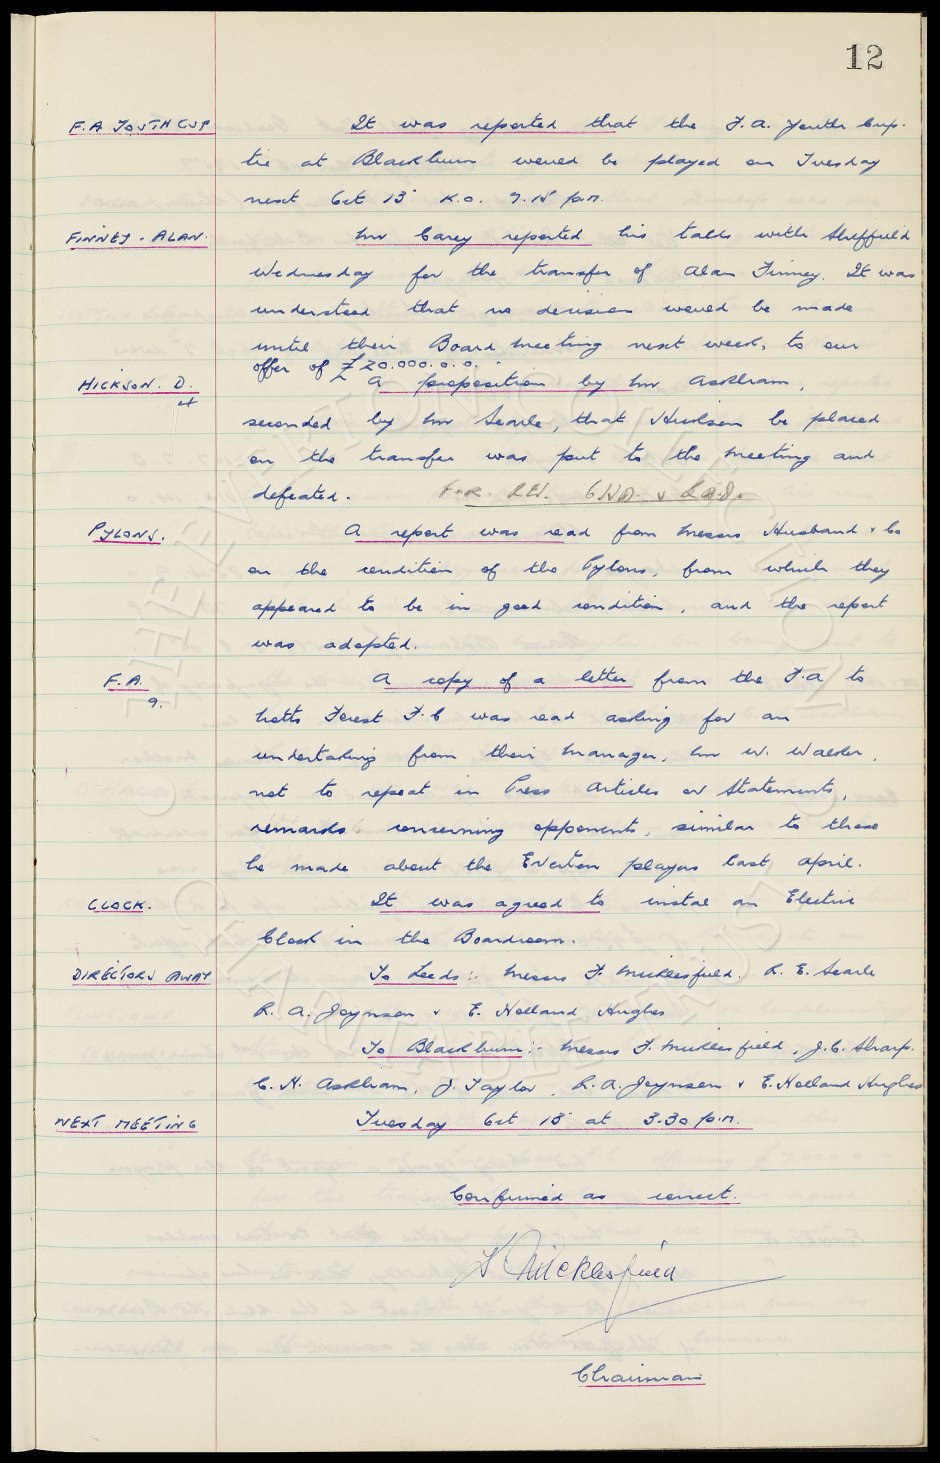 12
F.A YOUTH CUP It was reported that the F.A. Youth Cup.
tie at Blackburn would be played on Tuesday
next Oct 13 K.O. 7.15 p.m.
FINNEY. ALAN. Mr Carey reported his talks with Sheffield
Wednesday for the transfer of Alan Finney. It was
understood that no decision would be made
until their Board meeting next week, to our
offer of £20.000.0.0.
HICKSON. D. A proposition by Mr Askham,
4
seconded by Mr Searle, that Hickson be placed
on the transfer was put to the meeting and
defeated. FOR. RES.
PYLONS. A report was read from Messrs Husband & Co
on the condition of the Pylons, from which they
appeared to be in good condition, and the report
was adopted.
F.A. A copy of a letter from the F.A to
9.
Notts Forest F.C was read asking for an
undertaking from their Manager, Mr W. Walker,
not to repeat in Press Articles or Statements,
remarks concerning opponents, similar to those
he made about the Everton players last April.
CLOCK. It was agreed to instal an Electric
Clock in the Boardroom.
DIRECTORS AWAY To Leeds:- Messrs F. Micklesfield. R. E. Searle
R. A. Joynson & E. Holland Hughes
To Blackburn:- Messrs F. Micklesfield, J.C. Sharp.
C. H. Askham, J. Taylor, R.A. Joynson & E. Holland Hughes
NEXT MEETING Tuesday Oct 13 at 3.30 p.m.
Confirmed as correct.
F Micklesfield
Chairman